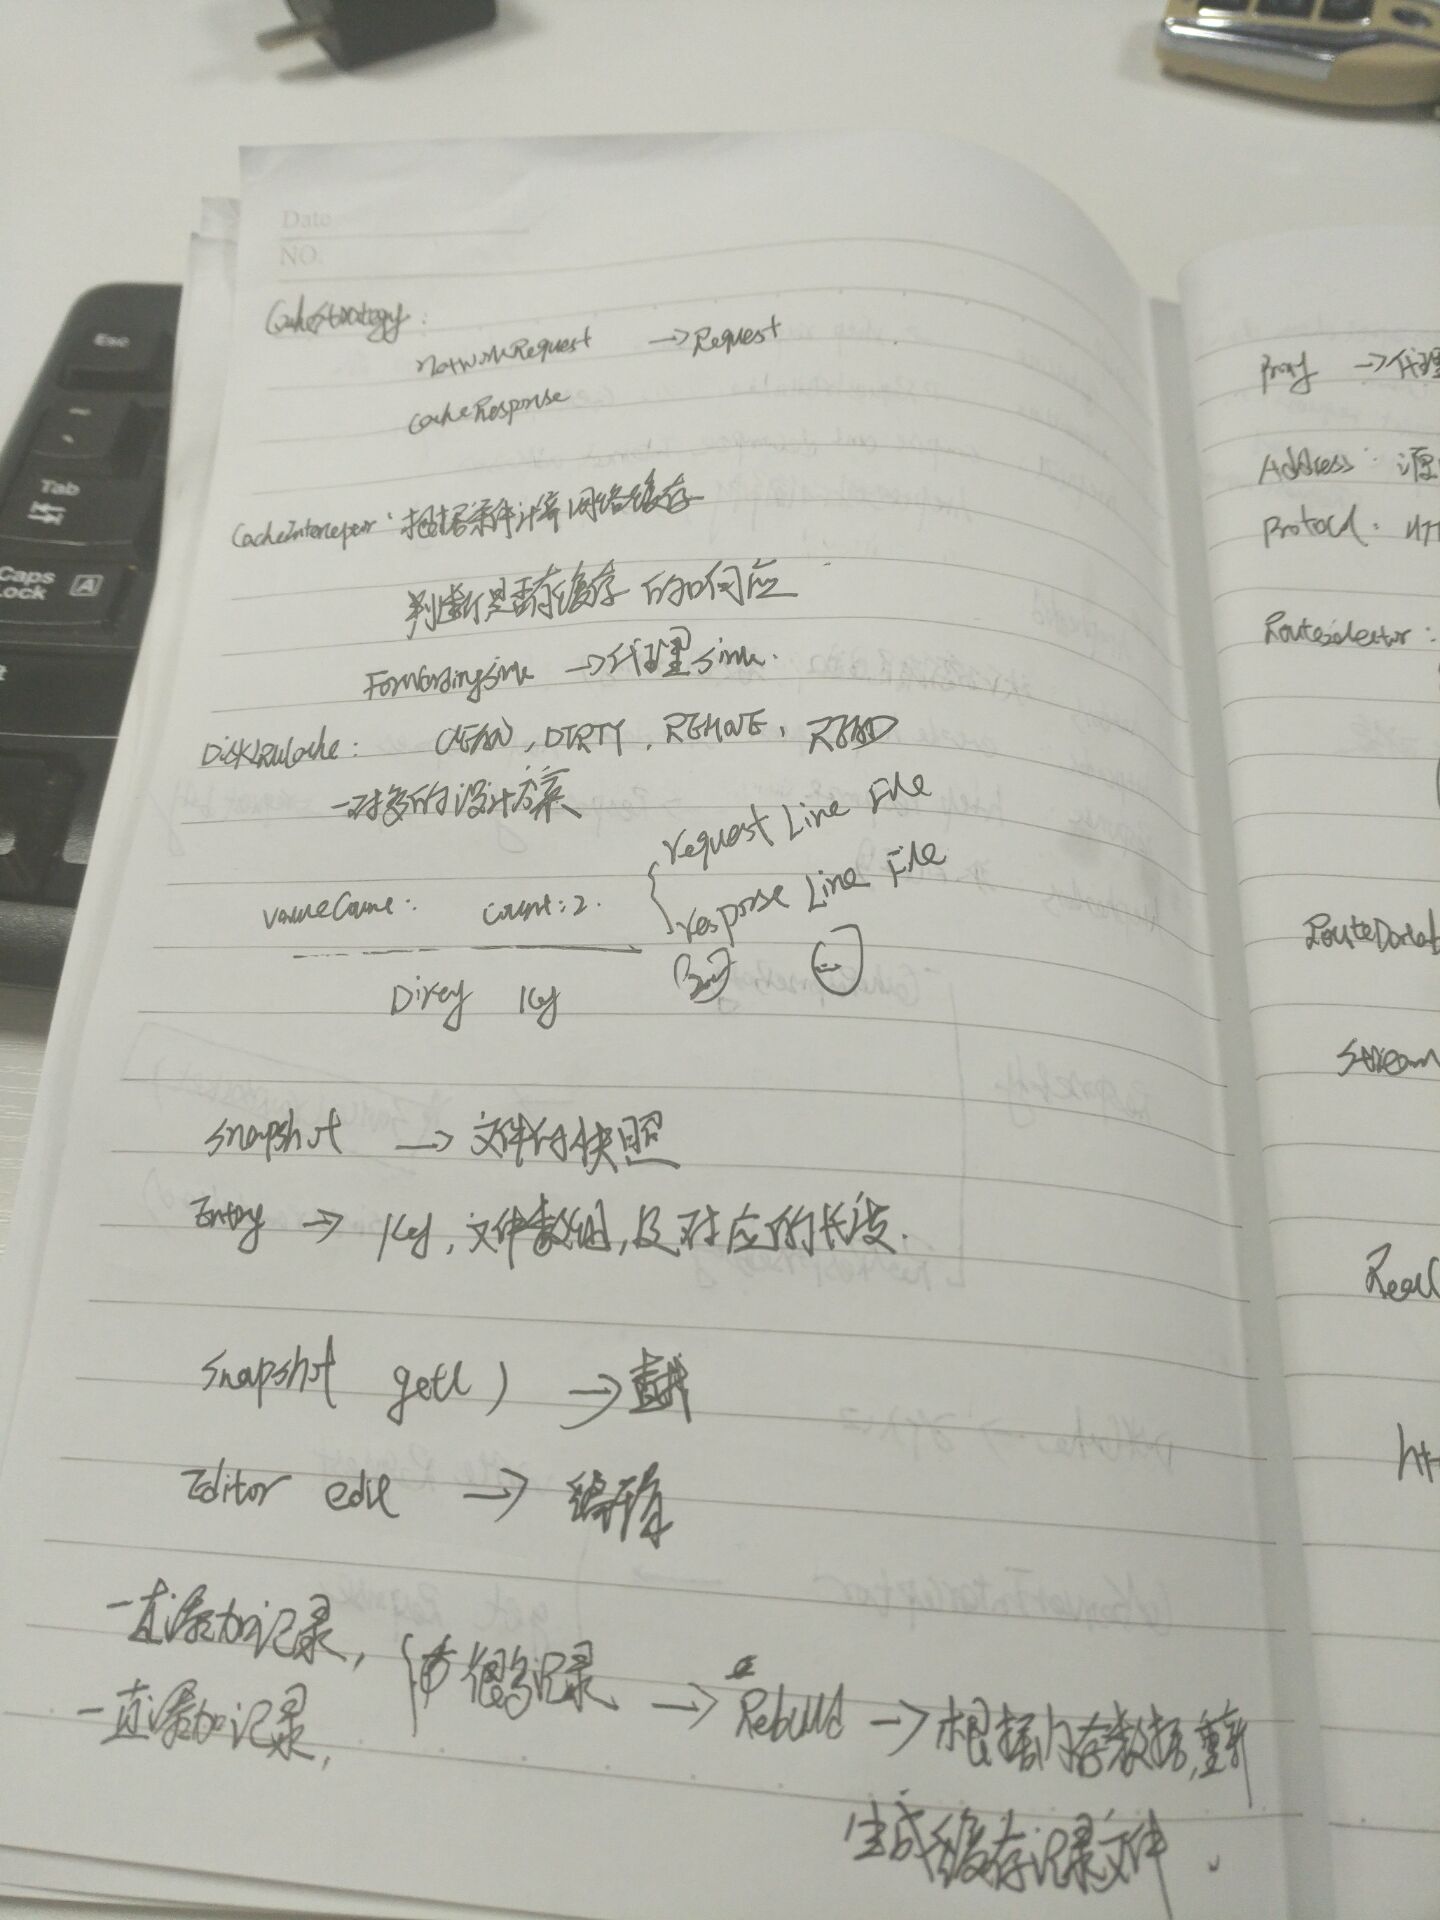 Date
NO.
CacheStrategy:
networkRequest → Request
cacheResponse
CacheInterceptor: 根据条件计算网络缓存
判断是否有缓存的响应
ForwardingSink → 代理 Sink.
DiskLruCache: CLEAN, DIRTY, REMOVE, READ
一对多的设计方案
valueCount: count:2. request Line File
response Line File
Dirty Key
Snapshot → 文件的快照
Entry → Key, 文件数组, 及对应的长度.
Snapshot get() → 查找
Editor edit → 编辑
一直添加记录, 很多记录 → Rebuild → 根据内存数据, 重新
一直添加记录,
生成缓存记录文件.
Proxy → 代理
Address:
Protocol: HTT
RouteSelector:
RouteDatab
Stream
RealC
htt
Esc
Tab
Caps
Lock A